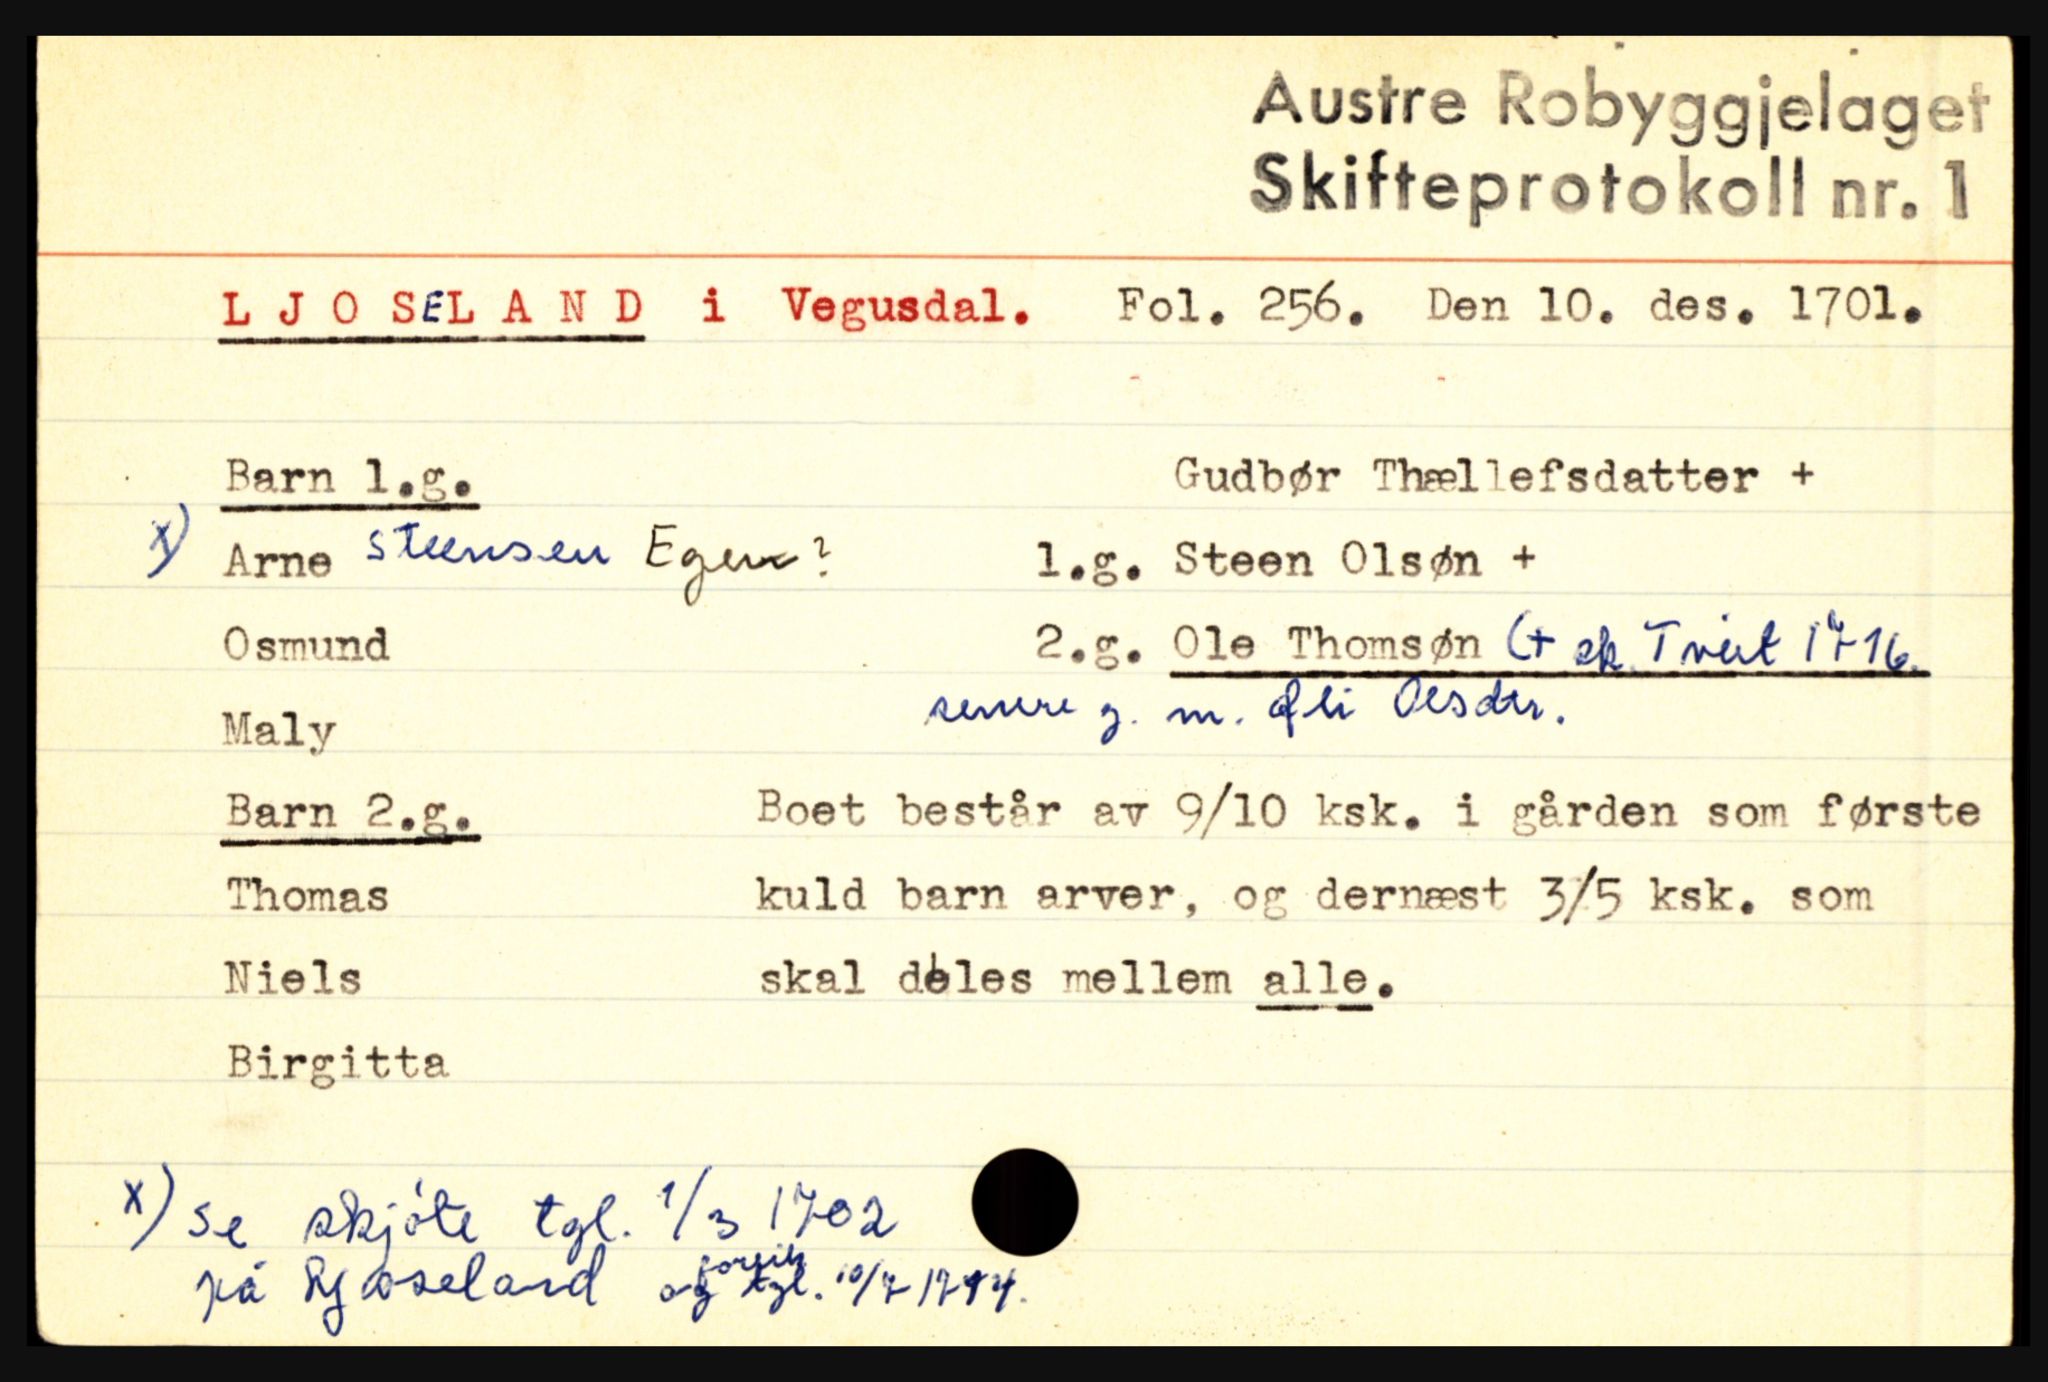 Austre Robyggjelaget
Skifteprotokoll nr. 1
L J O S E L A N D i Vegusdal. Fol. 256. Den 10. des. 1701.
Barn 1.g. Gudbør Thællefsdatter +
x) Arne Steensen Egen? 1.g. Steen Olsøn +
Osmund 2.g. Ole Thomsøn (+ sk. Tveit 1716.
Maly senere g. m. Øli Olsdtr.
Barn 2.g. Boet består av 9/10 ksk. i gården som første
Thomas kuld barn arver, og dernæst 3/5 ksk. som
Niels skal deles mellem alle.
Birgitta
x) Se skjöte tgl. 1/3 1702
på Ljoseland og tgl. 10/7